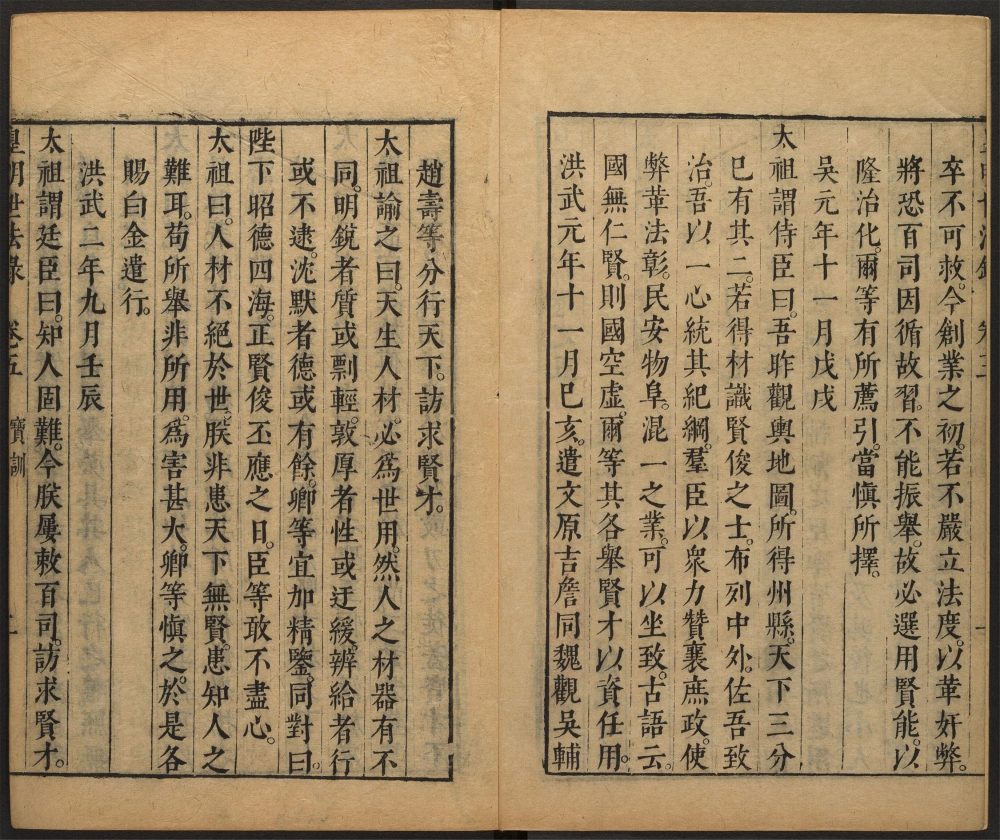 卒不可救。今創業之初。若不嚴立法度以革奸弊。
將恐百司因循故習。不能振舉。故必選用賢能。以
隆治化。爾等有所薦引。當慎所擇。
吳元年十一月戊戌
太祖謂侍臣曰。吾昨觀輿地圖。所得州縣。天下三分
已有其二。若得材識賢俊之士。布列中外。佐吾致
治。吾以一心統其紀綱。羣臣以衆力贊襄庶政。使
弊革法彰。民安物阜。混一之業。可以坐致。古語云。
國無仁賢。則國空虛。爾等其各舉賢才以資任用。
洪武元年十一月己亥。遣文原吉詹同魏觀吳輔
趙壽等分行天下。訪求賢才。
太祖諭之曰。天生人材。必爲世用。然人之材器有不
同。明銳者質或剽輕。敦厚者性或迂緩。辨給者行
或不逮。沈默者德或有餘。卿等宜加精鑒。同對曰。
陛下昭德四海。正賢俊丕應之日。臣等敢不盡心。
太祖曰。人材不絕於世。朕非患天下無賢。患知人之
難耳。苟所舉非所用。爲害甚大。卿等慎之。於是各
賜白金遣行。
洪武二年九月壬辰
太祖謂廷臣曰。知人固難。今朕屢敕百司。訪求賢才。
皇明世法錄 卷五 寶訓